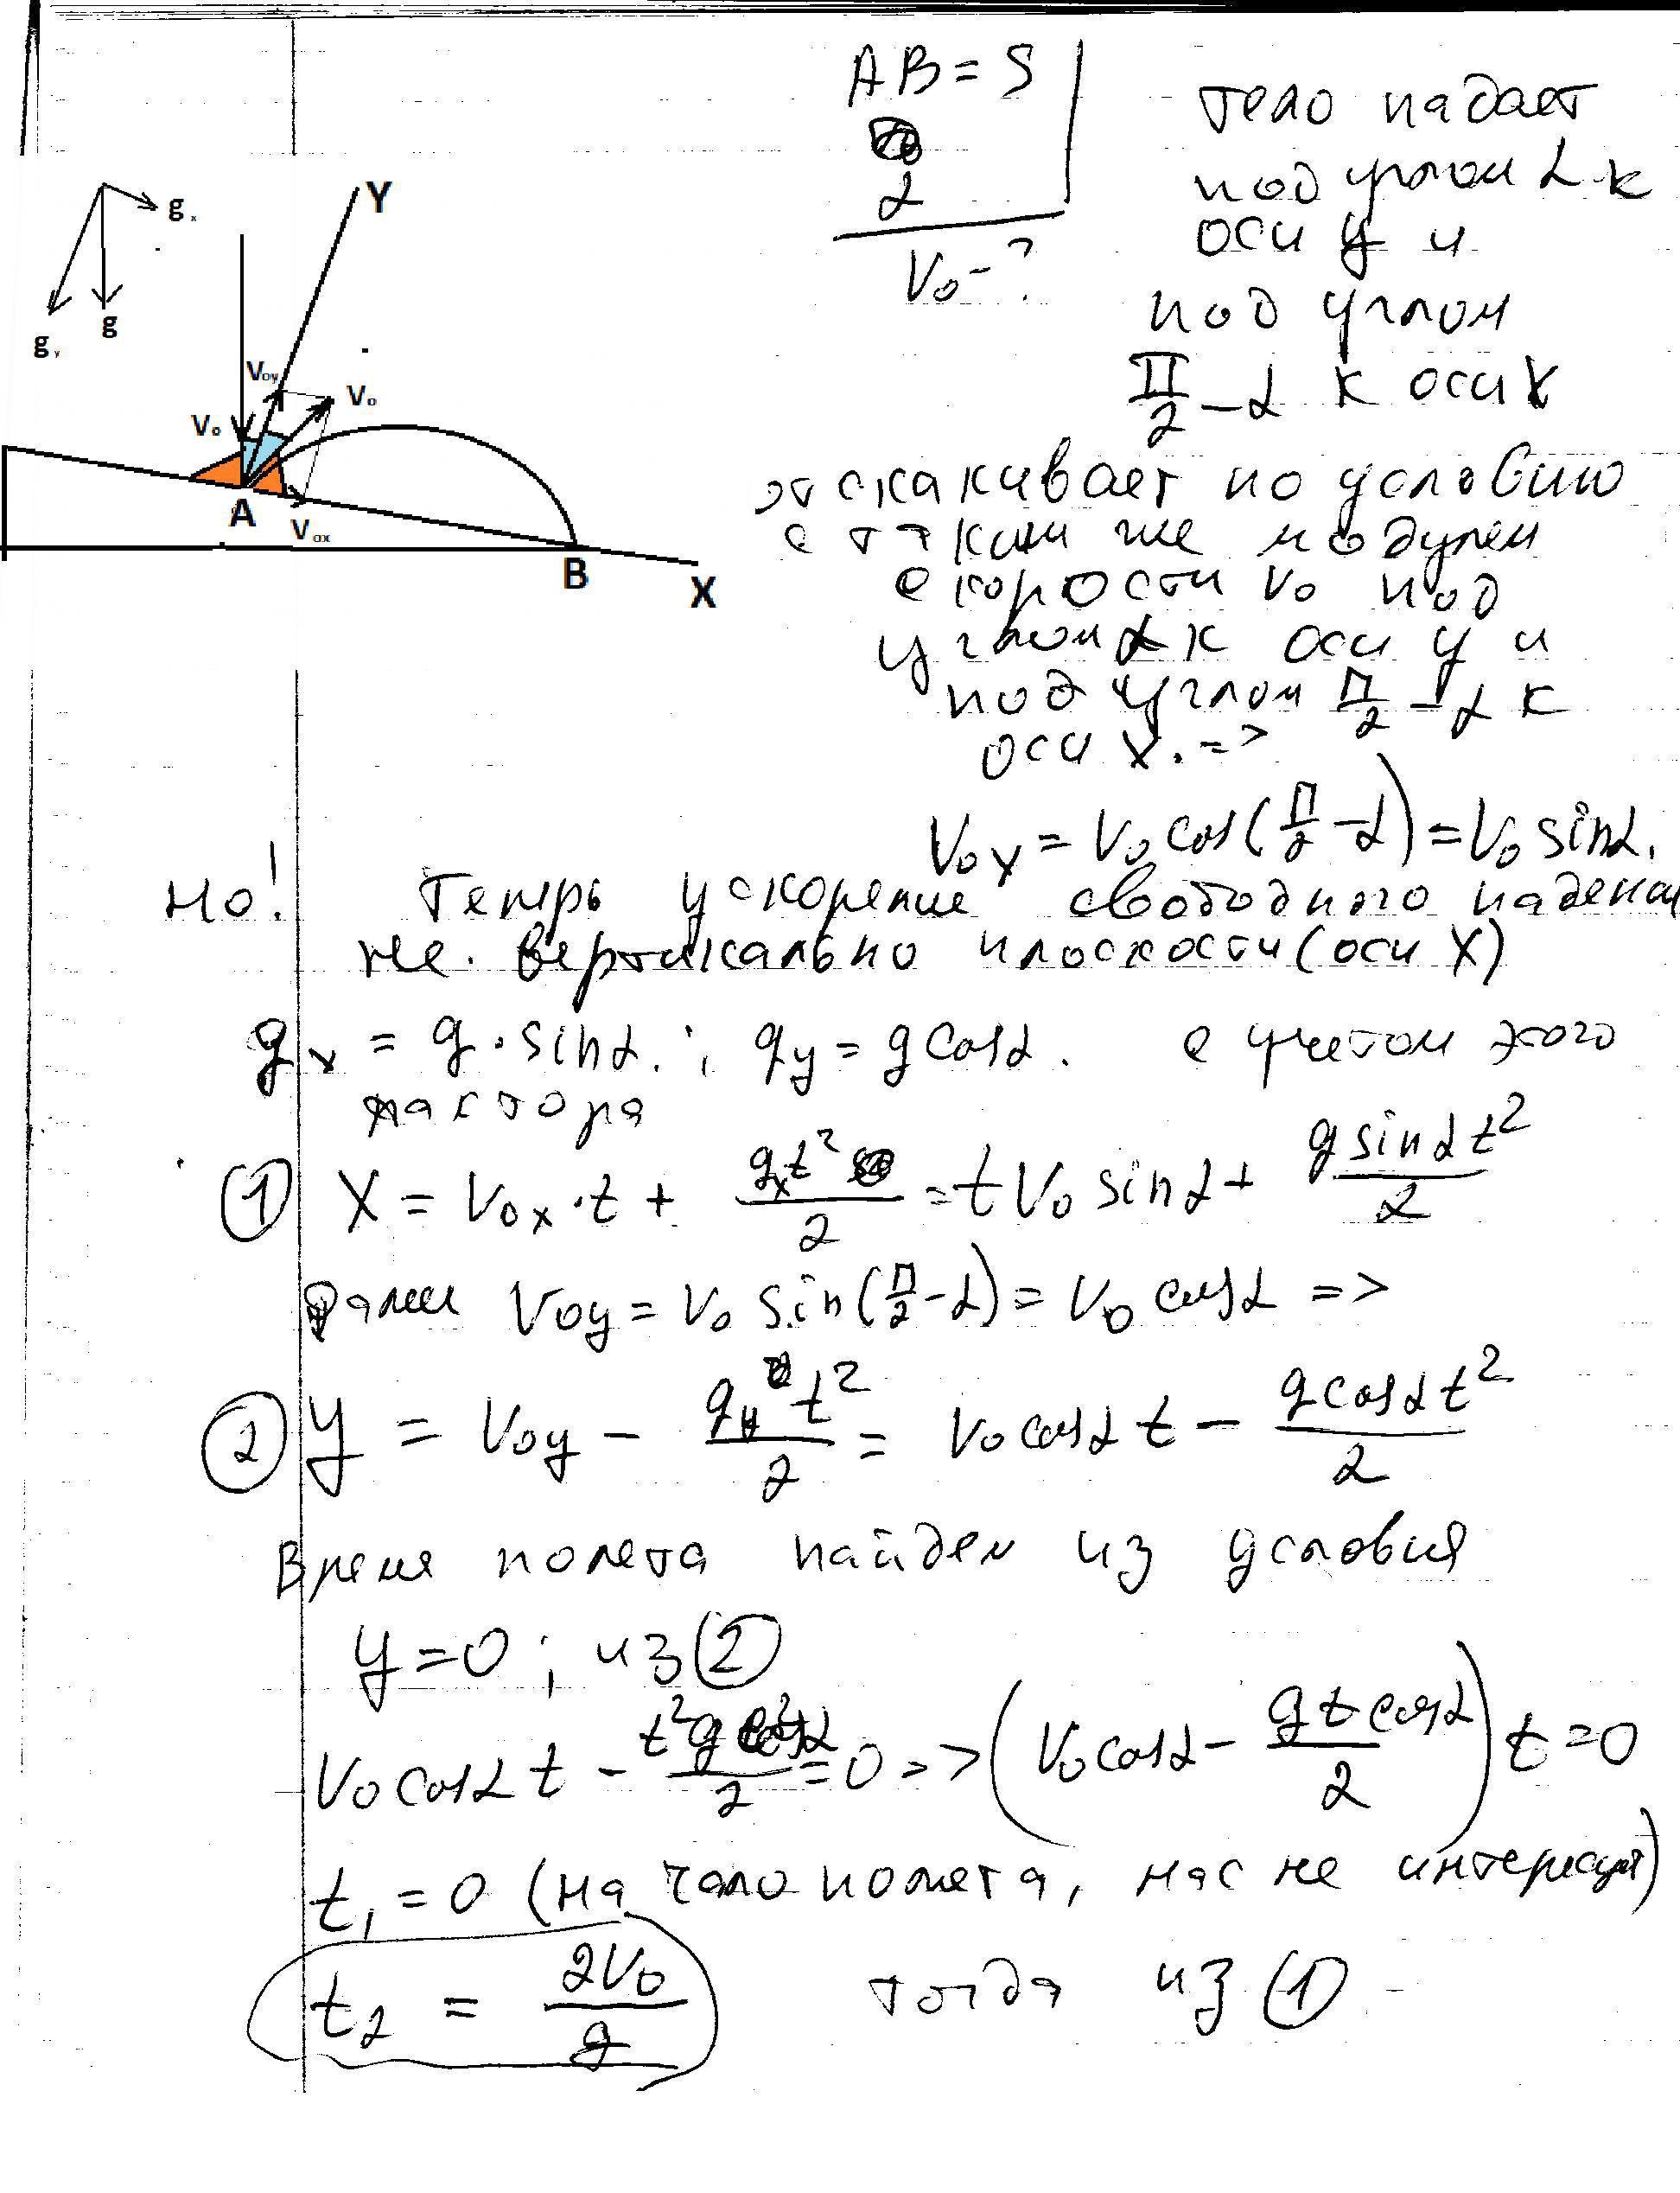 AB = S
α
V₀ - ?
тело падает
под углом α к
оси y и
под углом
π/2 - α к оси X
отскакивает по условию
с таким же модулем
скорости V₀ под
углом α к оси y и
под углом π/2 - α к
оси X. =>
Y
gₓ
g
g_y
V₀y
V₀
V₀
A
V₀ₓ
B
X
V₀ₓ = V₀ cos(π/2 - α) = V₀ sinα.
Но! Теперь ускорение свободного падения
не вертикально плоскости (оси X)
gₓ = g · sinα. ; g_y = g cosα. с учетом этого
фактора
① X = V₀ₓ · t + gₓt²/2 = t V₀ sinα + g sinα t²/2
далее V₀y = V₀ sin(π/2 - α) = V₀ cosα =>
② y = V₀y - g_y t²/2 = V₀ cosα t - g cosα t²/2
Время полета найдем из условия
y = 0 ; из ②
V₀ cosα t - t² g cosα/2 = 0 => (V₀ cosα - g t cosα/2) t = 0
t₁ = 0 (начало полета, нас не интересует)
t₂ = 2V₀/g тогда из ①